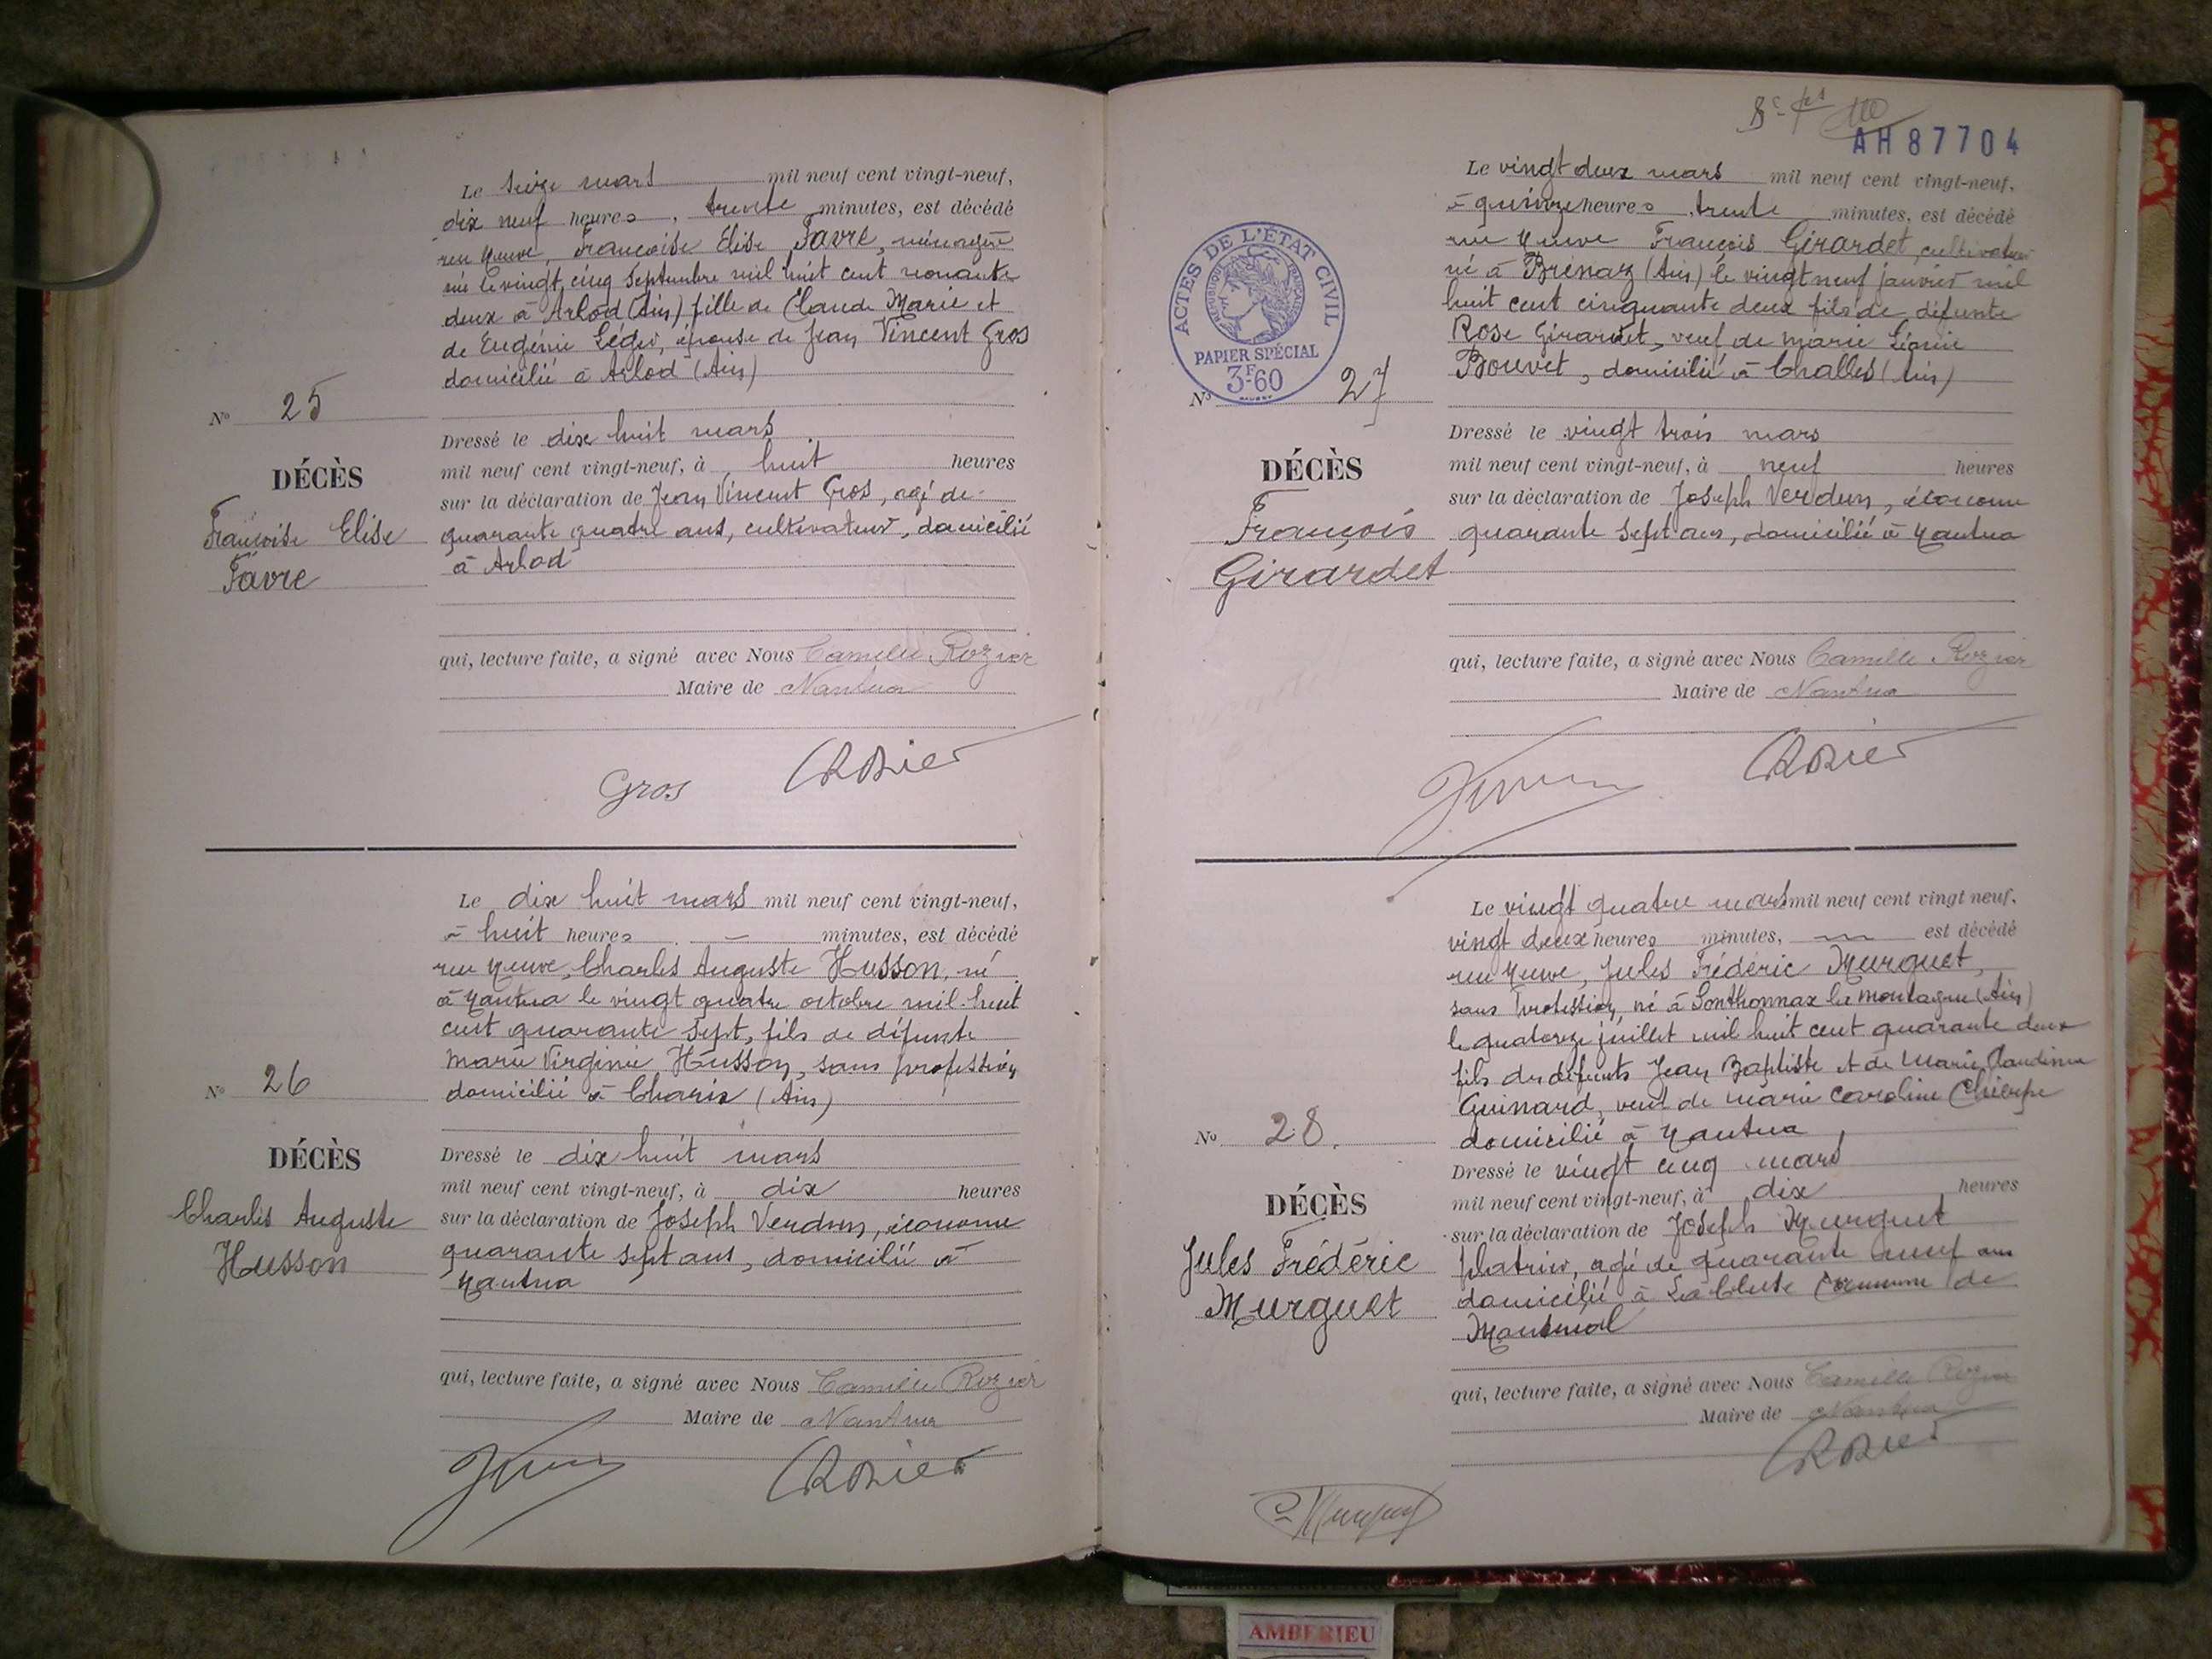 Le seize mars mil neuf cent vingt-neuf,
dix neuf heures, trente minutes, est décédé
rue Neuve, Françoise Elise Favre, ménagère
née le vingt cinq septembre mil huit cent nonante
deux à Arlod (Ain), fille de Claude Marie et
de Eugénie Léger, épouse de Jean Vincent Gros
domicilié à Arlod (Ain)
N° 25
DÉCÈS
Françoise Elise
Favre
Dressé le dix huit mars
mil neuf cent vingt-neuf, à huit heures
sur la déclaration de Jean Vincent Gros, agé de
quarante quatre ans, cultivateur, domicilié
à Arlod
qui, lecture faite, a signé avec Nous Camille Rozier
Maire de Nantua
Gros CRozier
Le dix huit mars mil neuf cent vingt-neuf,
à huit heures — minutes, est décédé
rue Neuve, Charles Auguste Husson, né
à Nantua le vingt quatre octobre mil huit
cent quarante sept, fils de défunte
Marie Virginie Husson, sans profession
domicilié à Charix (Ain)
N° 26
DÉCÈS
Charles Auguste
Husson
Dressé le dix huit mars
mil neuf cent vingt-neuf, à dix heures
sur la déclaration de Joseph Verdun, économe
quarante sept ans, domicilié à
Nantua
qui, lecture faite, a signé avec Nous Camille Rozier
Maire de Nantua
CRozier
AH 87704
Le vingt deux mars mil neuf cent vingt-neuf,
à quinze heures trente minutes, est décédé
rue Neuve François Girardet, cultivateur
né à Brénaz (Ain) le vingt neuf janvier mil
huit cent cinquante deux fils de défunte
Rose Girardet, veuf de Marie Léonie
Bouvet, domicilié à Challes (Ain)
ACTES DE L'ÉTAT CIVIL
RÉPUBLIQUE FRANÇAISE
PAPIER SPÉCIAL
3F60
N° 27
DÉCÈS
François
Girardet
Dressé le vingt trois mars
mil neuf cent vingt-neuf, à neuf heures
sur la déclaration de Joseph Verdun, économe
quarante sept ans, domicilié à Nantua
qui, lecture faite, a signé avec Nous Camille Rozier
Maire de Nantua
CRozier
Le vingt quatre mars mil neuf cent vingt neuf,
vingt deux heures minutes, — est décédé
rue Neuve, Jules Frédéric Murguet,
sans profession, né à Sonthonnax la montagne (Ain)
le quatorze juillet mil huit cent quarante deux
fils de défunts Jean Baptiste et de Marie Claudine
Guinard, veuf de Marie Caroline
domicilié à Nantua
N° 28.
DÉCÈS
Jules Frédéric
Murguet
Dressé le vingt cinq mars
mil neuf cent vingt-neuf, à dix heures
sur la déclaration de Joseph Murguet
platrier, agé de quarante neuf ans
domicilié à La Cluse Commune de
Montréal
qui, lecture faite, a signé avec Nous Camille Rozier
Maire de Nantua
CRozier
Murguet
AMBERIEU